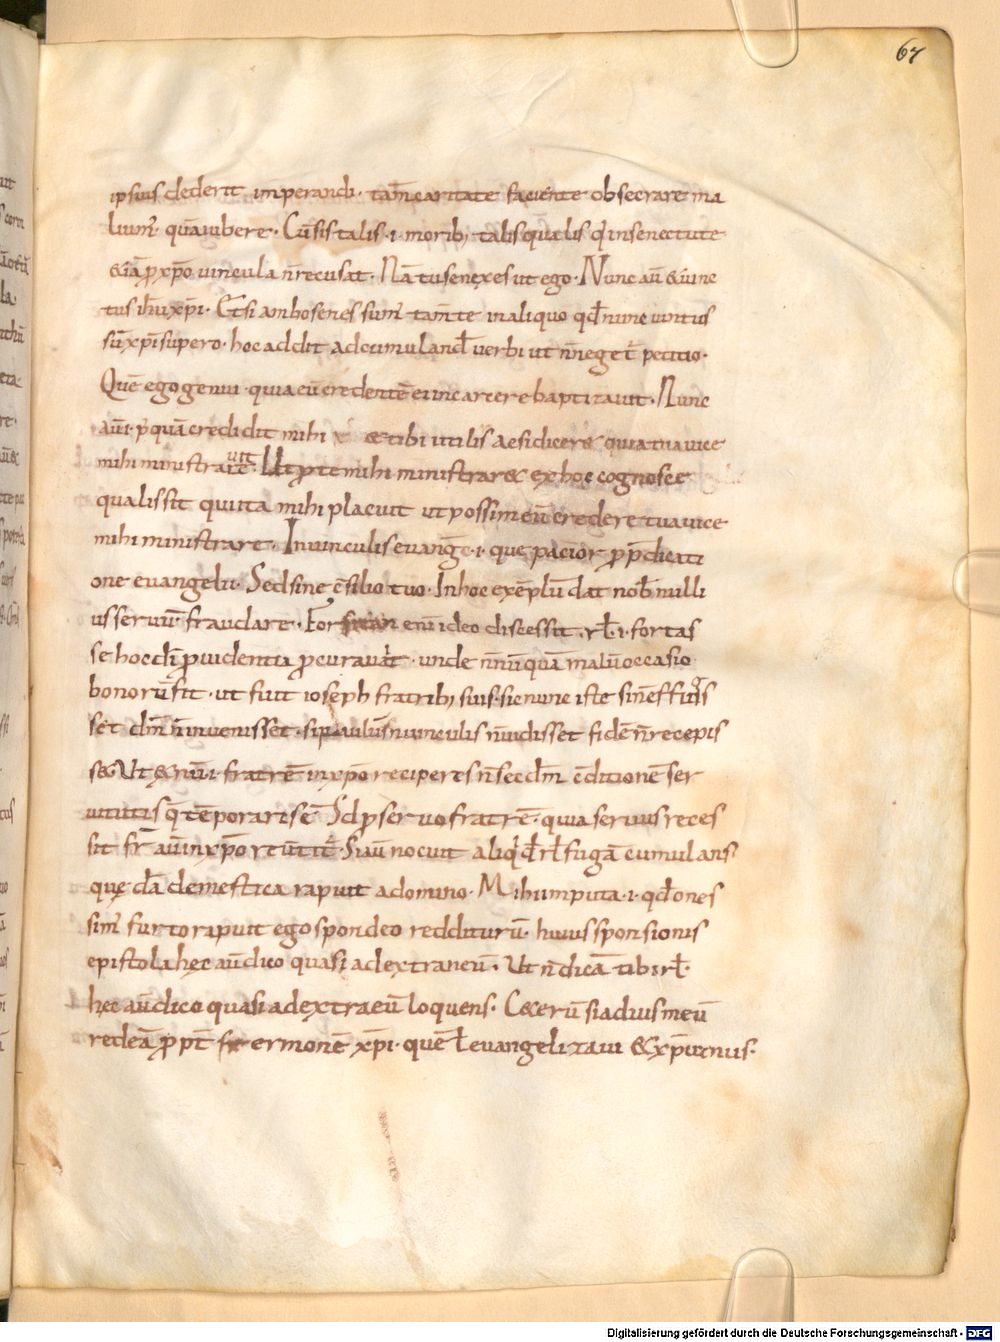 67
ipsius dederit imperandi · tam̄ caritate faciente obsecrare ma
lium̄ quā iubere · Cū sis talis · i · morib; talis qualis q̄ in senectute
&iā ꝓ xp̄o uincula n̄ recusat · Nā tu senex es ut ego · Nunc aū &uinc
tus ih̄u xp̄i · Etsi ambo senes sum̄ tam̄ te in aliquo qđ nunc uinctus
sū xp̄i supero · hoc addit ad cumulanđ uerbi ut n̄ neget̄ petitio ·
Quē ego genui · quia eū credentē ei in carcere baptizauit · Nunc
aū · i · p̄quā credidit mihi & tibi utilis ac si diceret quia tua uice
mihi ministrauit · Ut ꝓ te mihi ministrar& ex hoc cognosce
qualis sit qui ita mihi placuit ut possim eū credere tua uice
mihi ministrare · In uinculis euang̅ · i · que pacior ꝓp̄dicati
one euangelii · Sed sine c̄silio tuo · In hoc exēplū dat nob̄ nulli
us seruū fraudare · Forsitan eni ideo discessit · rł · i · fortas
se hoc dī ꝓuidentia ꝓcurauit · unde n̄nūquā malū occasio
bonorū fit · ut fuit ioseph fratrib; suis · sic nunc iste sin̄ effugis
set dn̄m n̄ inuenisset · si paulus in uinculis n̄ uidisset fidē n̄ recepis
s& Ut &nū · i · fratrē in xp̄o reciperes n̄ secđm c̄ditionē ser
uitutis q̄ tēporaris ē Sđ ꝓ seruo fratrē · quia seruus reces
sit fr̄ aū in xp̄o reūtit̄ · Si aū nocuit aliqđ đ rł fugā cumulans
quę dā domestica rapuit a domino · Mihi imputa · i · qđ ones
sim̄ furto rapuit ego spondeo redditurū · huius sponsionis
epistola hęc aū dico quasi ad extraneū · Ut n̄ dicā tibi rł ·
hęc aū dico quasi ad extraeū loquens · C&erū si adius meū
redeā ꝓpt̄ sermonē xp̄i · quē ł euangelizaui & xp̄i unus ·
Digitalisierung gefördert durch die Deutsche Forschungsgemeinschaft - DFG